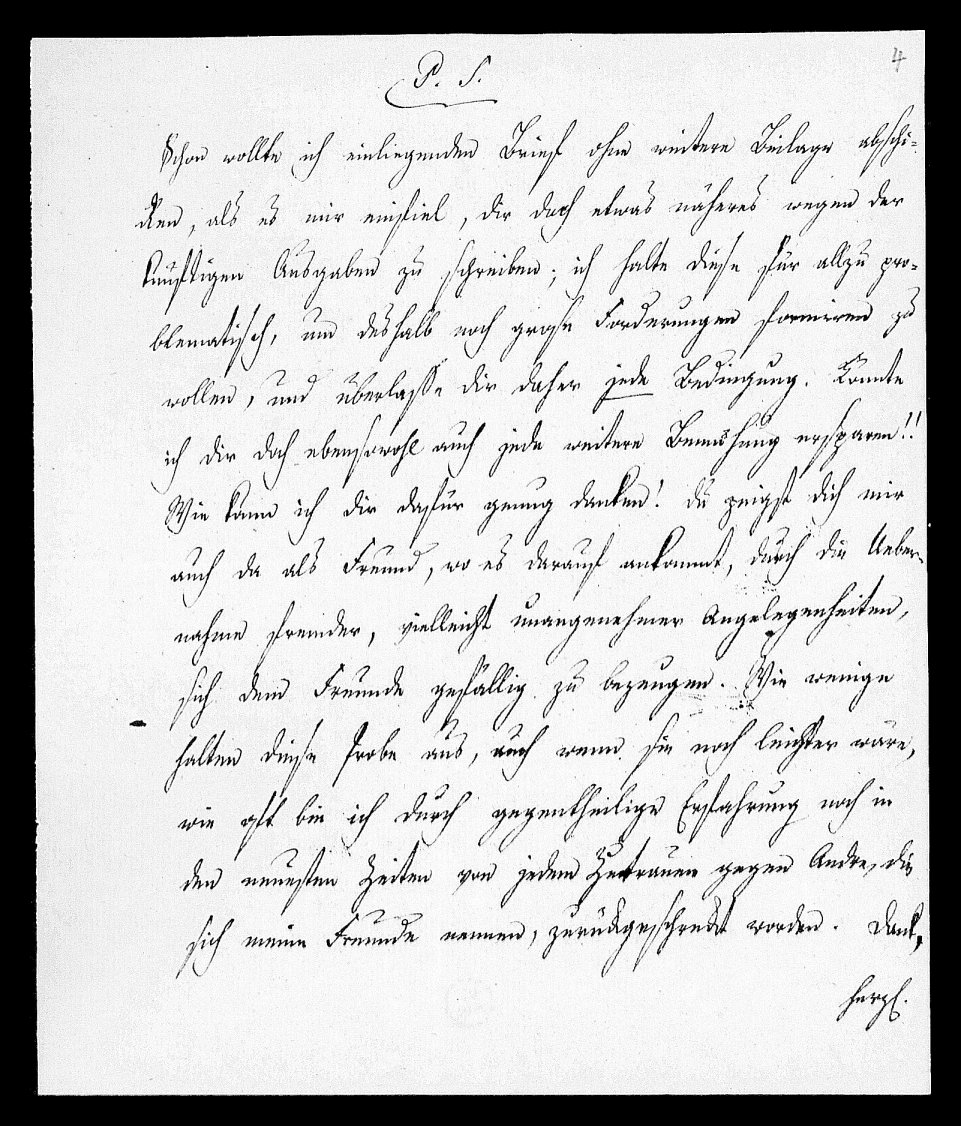 4
P. S.
Schon wollte ich einliegenden Brief ohne weitere Beilage abschi-
cken, als es mir einfiel, dir doch etwas näheres wegen der
künftigen Ausgaben zu schreiben; ich halte diese für allzu pro-
blematisch, um deshalb noch grose Forderungen formiren zu
wollen, und überlasse dir daher jede Bedingung. Könnte
ich dir doch ebensowohl auch jede weitere Bemühung ersparen!!
Wie kann ich dir dafür genug danken! du zeigst dich mir
auch da als Freund, wo es darauf ankommt, durch die Ueber-
nahme fremder, vielleicht unangenehmer Angelegenheiten,
sich dem Freunde gefällig zu bezeugen. Wie wenige
halten diese Probe aus, auch wenn sie noch leichter wäre,
wie oft bin ich durch gegentheilige Erfahrung noch in
den neuesten Zeiten von jedem Zutrauen gegen Andre, die
sich meine Freunde nennen, zurückgeschreckt worden. Dank,
herzl.